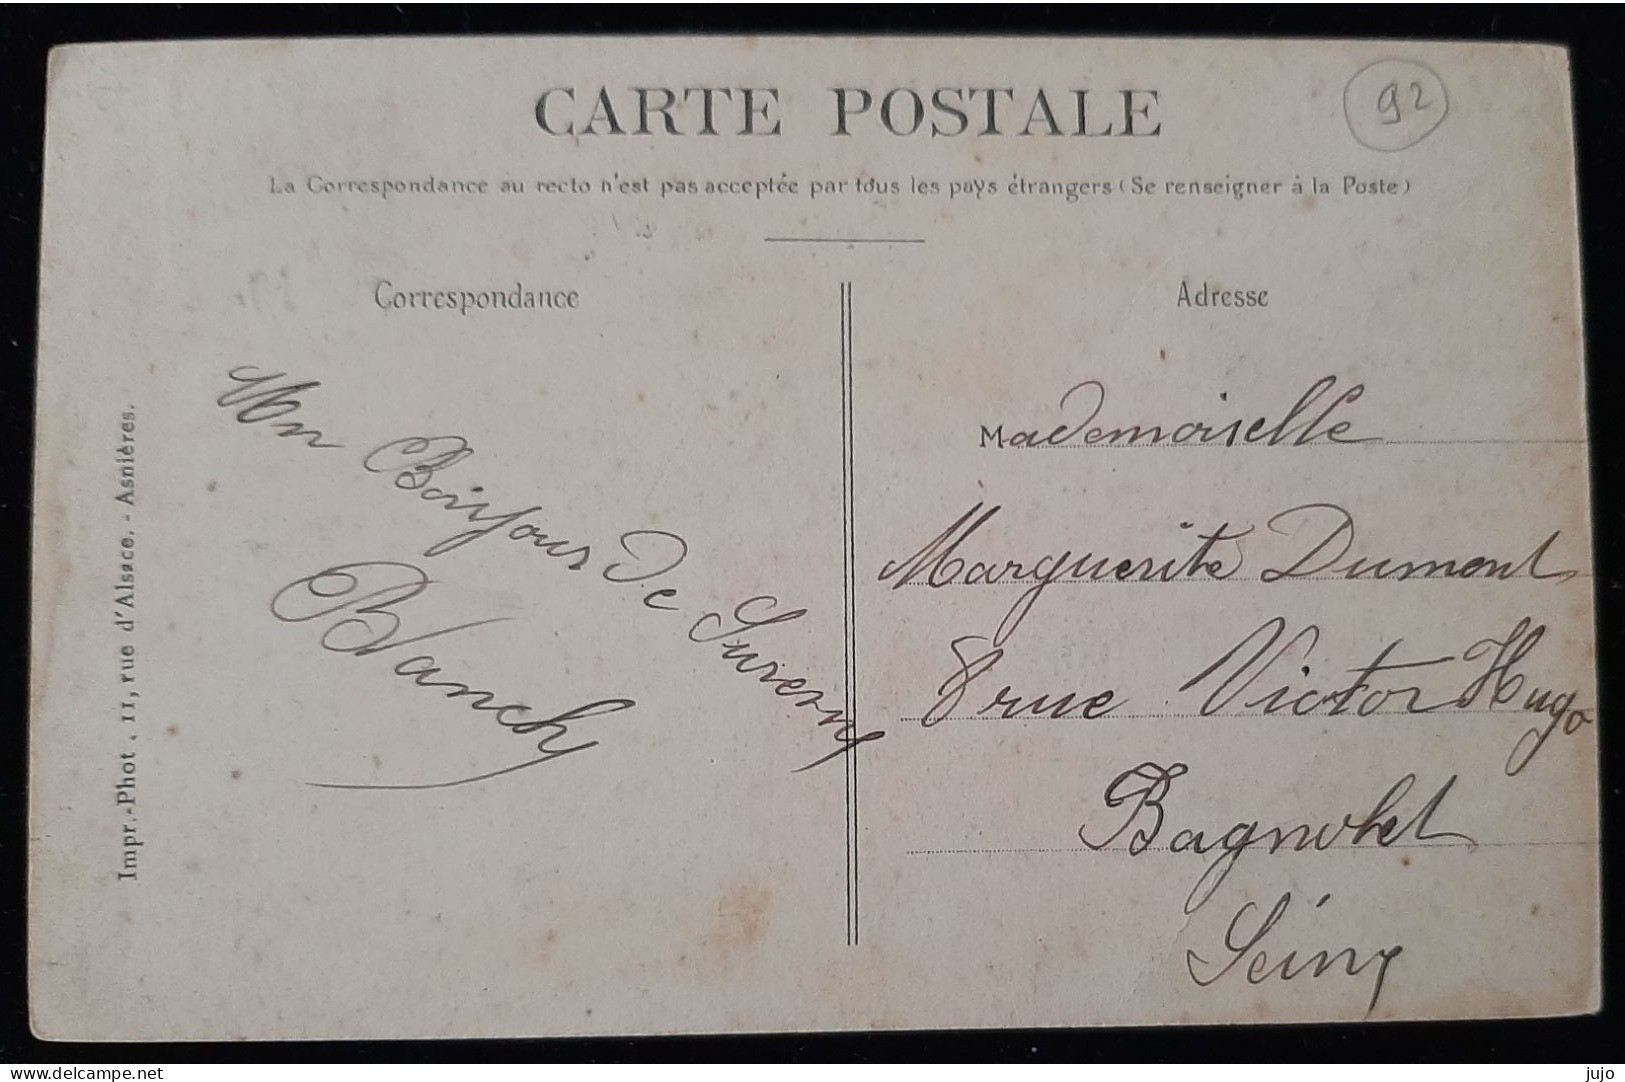 CARTE POSTALE
92
La Correspondance au recto n'est pas acceptée par tous les pays étrangers (Se renseigner à la Poste)
Correspondance
Un Bonjour De Suresne
Blanche
Adresse
Mademoiselle
Marguerite Dumont
8 rue Victor Hugo
Bagnolet
Seine
Impr.-Phot., 11, rue d'Alsace. - Asnières.
www.delcampe.net
jujo